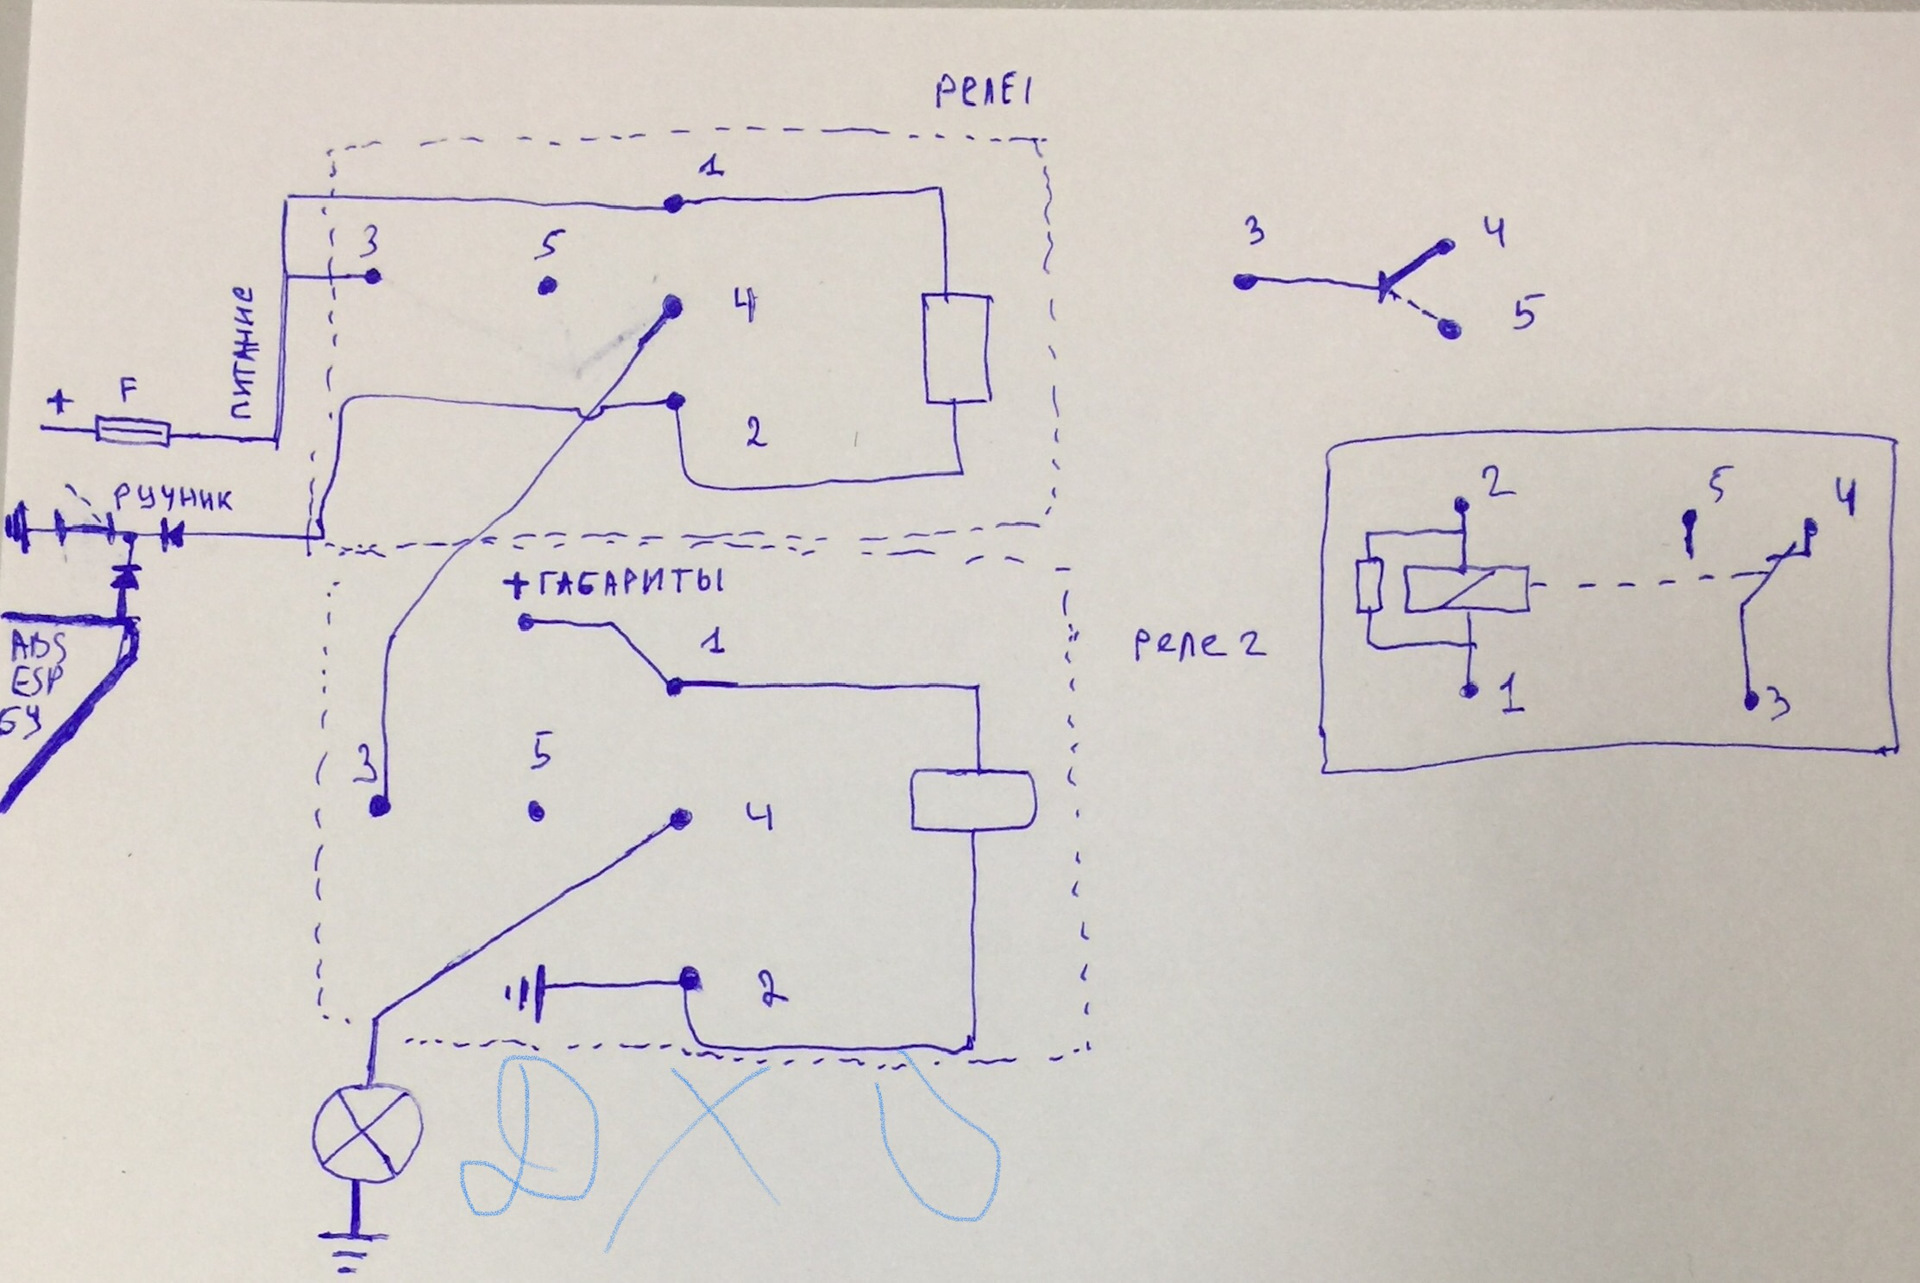 РЕЛЕ1
1
3
5
4
2
ПИТАНИЕ
+ F
РУЧНИК
ABS
ESP
БУ
+ ГАБАРИТЫ
1
3
5
4
2
3
4
5
РЕЛЕ 2
2
5
4
1
3